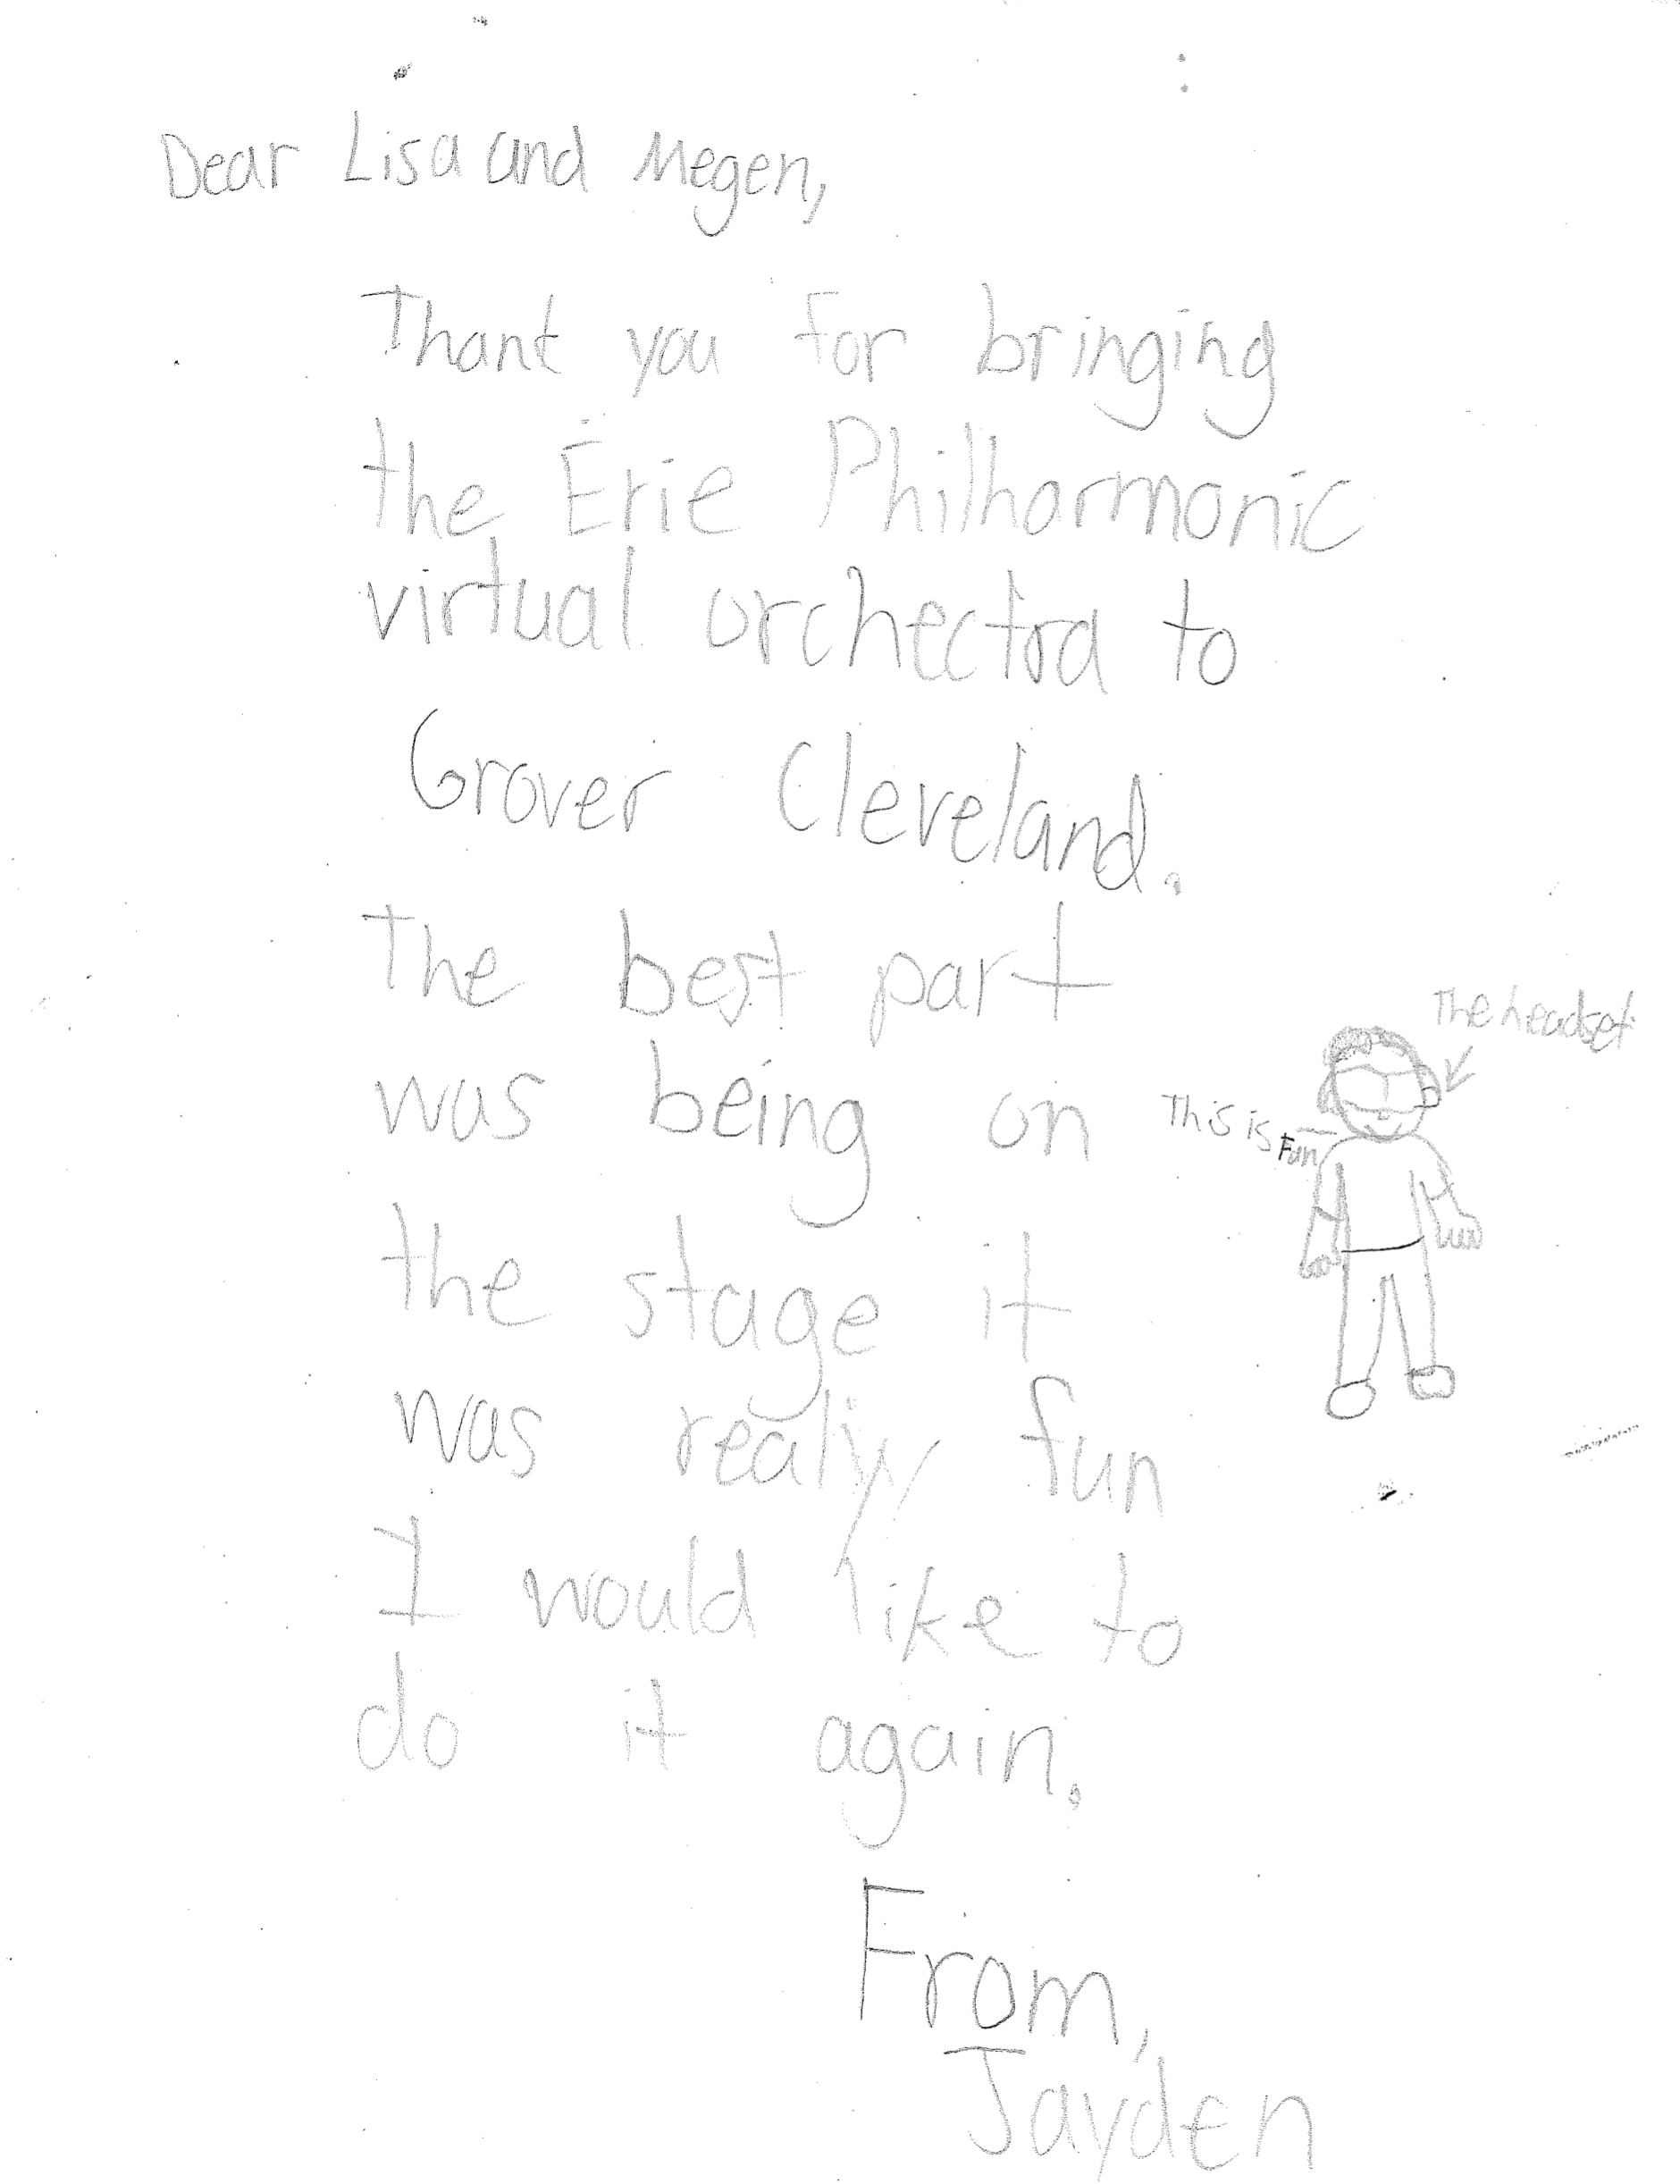 Dear Lisa and Megen,
Thant you for bringing
the Erie Philharmonic
virtual orchectra to
Grover Cleveland.
The best part
was being on
the stage it
was realy fun
I would like to
do it again.
From,
Jayden
The headset
This is Fun